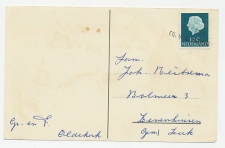 12 C
NEDERLAND
Fam.
Joh. Reitsema
Bolmeer 3
Zevenhuizen
Gem Leek
Gr. en F.
Oldekerk